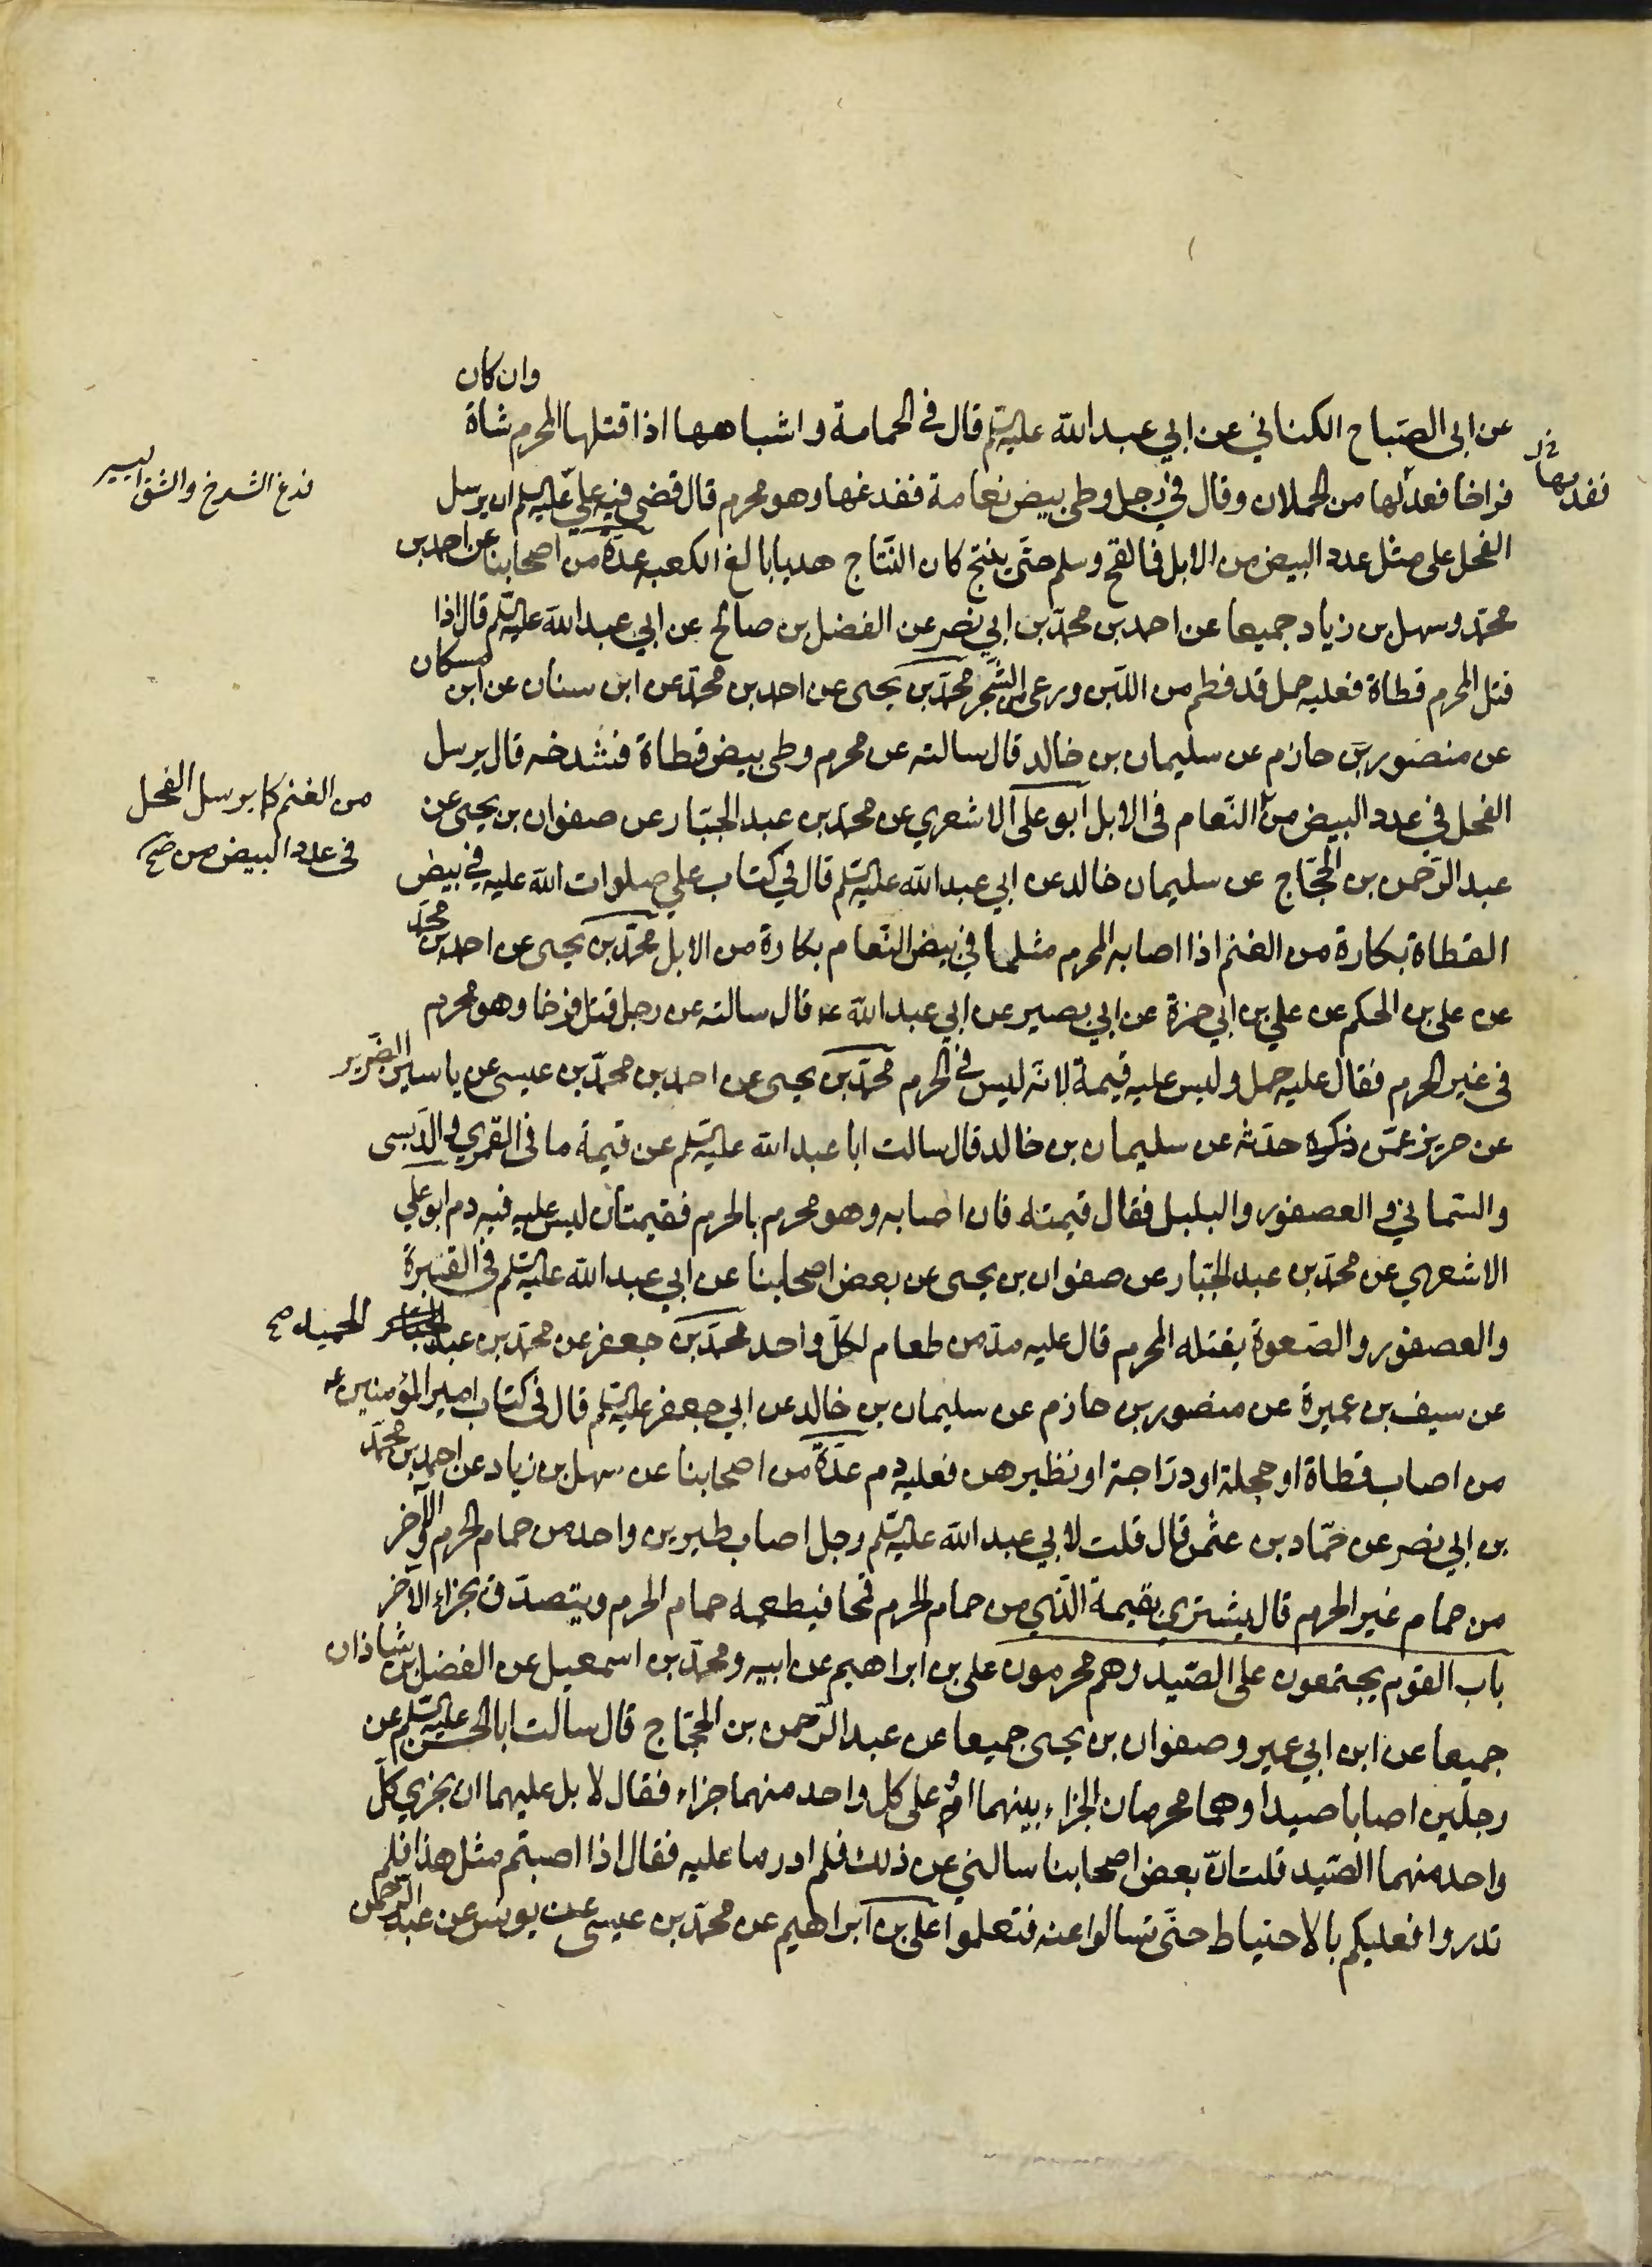 وان كان
عن ابي الصّباح الكناني عن ابي عبد الله عليه السّلم قال في الحمامة و اشباهها اذا قتلها المحرم شاة
فراخا فعدلها من الحملان وقال في رجل وطى بيض نعامة ففدغها وهو محرم قال قضى فيه علي عليه السلم ان يرسل
الفحل على مثل عدد البيض من الابل فما لقح وسلم حتى ينتج كان النّتاج هديا بالغ الكعبه عدّة من اصحابنا عن احمد بن
محمّد وسهل بن زياد جميعا عن احمد بن محمّد بن ابي نصر عن الفضل بن صالح عن ابي عبد الله عليه السّلم قال اذا
قتل المحرم قطاة فعليه حمل قد فطم من اللّبن ورعى من الشّجر محمّد بن يحيى عن احمد بن محمّد عن ابن سنان عن ابن مسكان
عن منصور بن حازم عن سليمان بن خالد قال سالته عن محرم وطى بيض قطاة فشدخه قال يرسل
الفحل في عدد البيض من النّعام في الابل ابو علي الاشعري عن محمّد بن عبد الجبّار عن صفوان بن يحيى عن
عبد الرّحمن بن الحجّاج عن سليمان خالد عن ابي عبد الله عليه السّلم قال في كتاب علي صلوات الله عليه في بيض
القطاة بكارة من الغنم اذا اصابه المحرم مثل ما في بيض النّعام بكارة من الابل محمّد بن يحيى عن احمد بن محمّد
عن علي بن الحكم عن علي بن ابي حمزة عن ابي بصير عن ابي عبد الله ع قال سالته عن رجل قتل فرخا وهو محرم
في غير الحرم فقال عليه حمل وليس عليه قيمة لانّه ليس في الحرم محمّد بن يحيى عن احمد بن محمّد بن عيسى عن ياسين الضّرير
عن حريز عمّن ذكره حدّثه عن سليمان بن خالد قال سالت ابا عبد الله عليه السّلم عن قيمة ما في القمري و الدّبسى
والسّماني و العصفور و البلبل فقال قيمته فان اصابه وهو محرم بالحرم فقيمتان ليس عليه فيه دم ابو علي
الاشعري عن محمّد بن عبد الجبّار عن صفوان بن يحيى عن بعض اصحابنا عن ابي عبد الله عليه السّلم في القنبرة
والعصفور و الصّعوة يقتله المحرم قال عليه مدّ من طعام لكلّ واحد محمّد بن جعفر عن محمّد بن عبد الجبّار الحميد صح
عن سيف بن عميرة عن منصور بن حازم عن سليمان بن خالد عن ابي جعفر عليه السّلم قال في كتاب امير المؤمنين ع
من اصاب قطاة او حجلة او درّاجة او نظيرهن فعليه دم عدّة من اصحابنا عن سهل بن زياد عن احمد بن محمّد
بن ابي نصر عن حمّاد بن عثمن قال قلت لابي عبد الله عليه السّلم رجل اصاب طيرين واحد من حمام الحرم والآخر
من حمام غير الحرم قال يشتري بقيمة الّذي من حمام الحرم قمحا فيطعمه حمام الحرم ويتصدّق بجزاء الآخر
باب القوم يجتمعون على الصّيد وهم محرمون علي بن ابراهيم عن ابيه ومحمّد بن اسمعيل عن الفضل بن شاذان
جميعا عن ابن ابي عمير و صفوان بن يحيى جميعا عن عبد الرّحمن بن الحجّاج قال سالت ابا الحسن عليه السّلم عن
رجلين اصابا صيدا وهما محرمان الجزاء بينهما ام على كل واحد منهما جزاء فقال لا بل عليهما ان يجزي كلّ
واحد منهما الصّيد قلت انّ بعض اصحابنا سالني عن ذلك فلم ادر ما عليه فقال اذا اصبتم مثل هذا فلم
تدروا فعليكم بالاحتياط حتّى تسالوا عنه فتعلموا علي بن ابراهيم عن محمّد بن عيسى عن يونس عن عبد الرّحمن
فدغ الشدخ والشق اليسير
من الغنم كما يرسل الفحل
في عدد البيض من صح